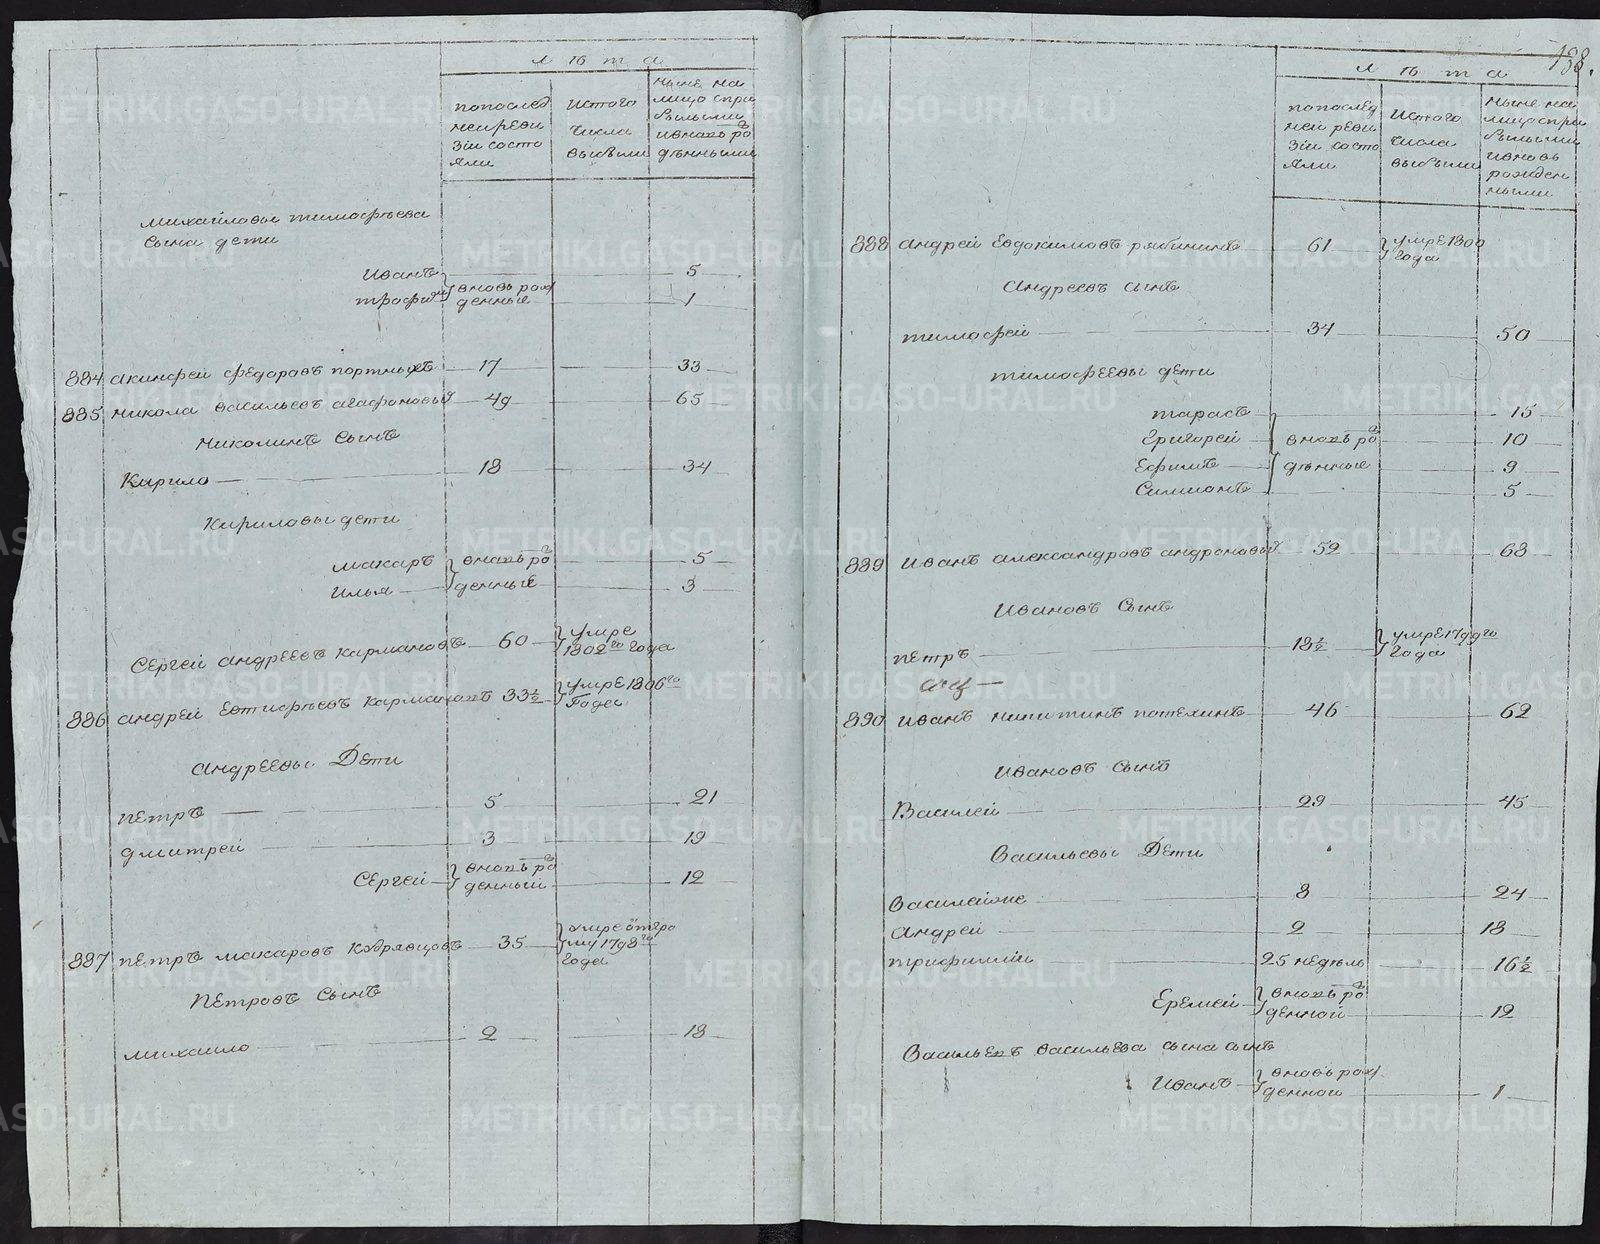 лѣта
попослед
неиреви
зіи состо
яли
истого
числа
выбыли
ныне на
лицо спри
былыми
ивновь ро
дѣнными
михайловы тимофѣева
сына дети
Иванъ
вновь рож
5
трофим
денные
1
884 акинфей федоровъ портныхъ 17 33
885 никола васильевъ агафоновы 49 65
николинъ сынъ
Кирило 18 34
Кириловы дети
макаръ вновь ро 5
Илья денные 3
Сергей андреевъ кармановъ 60 умре
1802го года
886 андрей Евтифѣевъ кармановъ 33½ умре 1806го
Года
андреевы Дети
петръ 5 21
дмитрей 3 19
Сергей вновь ро
денный 12
887 петръ макаровъ кудрявцовъ 35 умре отгро
му 1798го
года
Петровъ сынъ
михаило 2 18
188.
лѣта
попослед
ней реви
зіи состо
яли
Истого
числа
выбыли
ныне на
лицо спри
былыми
ивновь
рожден
ными
888 андрей Евдокимовъ рябининъ 61 умре 1800
Года
андреевъ сынъ
тимофей 34 50
тимофеевы дети
тарасъ 15
Григорей вновь ро 10
Ефимъ дѣнные 9
Симионъ 5
889 Иванъ александровъ андроновы 52 68
Ивановъ Сынъ
петръ 18½ умре 1799го
Года
890 Иванъ никитинъ потехинъ 46 62
Ивановъ сынъ
Василей 29 45
Васильевы Дети
василейже 8 24
андрей 2 18
трифилии 25 недѣль 16½
Еремей вновь ро
денной 12
Васильевъ васильева сына сынъ
Иванъ вновь рож
денной 1
METRIKI.GASO-URAL.RU